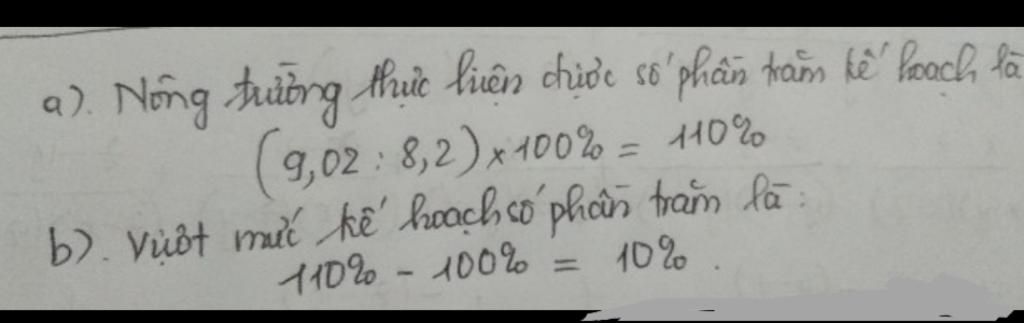 a). Nông trường thực hiện được số phần trăm kế hoạch là
(9,02 : 8,2) × 100% = 110%
b). Vượt mức kế hoạch số phần trăm là:
110% - 100% = 10%.